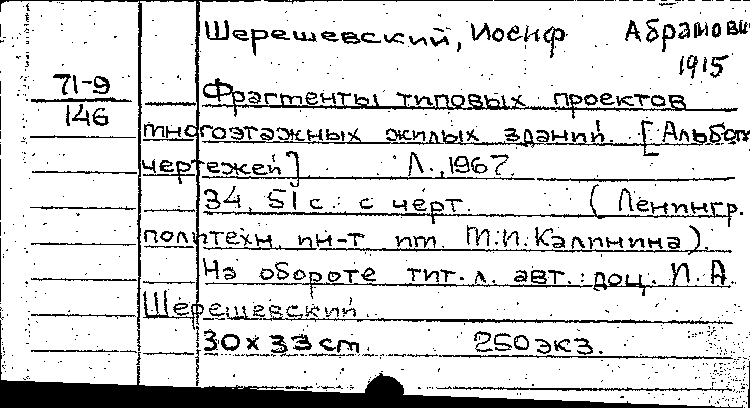 Шерешевский, Иосиф Абрамови
1915
71-9
146
Фрагменты типовых проектов
многоэтажных жилых зданий. [Альбом
чертежей] Л., 1967.
34, 51 с. с черт. (Ленингр.
политехн. ин-т им. М.И. Калинина).
На обороте тит. л. авт.: доц. И. А.
Шерешевский.
30 х 33 см. 250 экз.